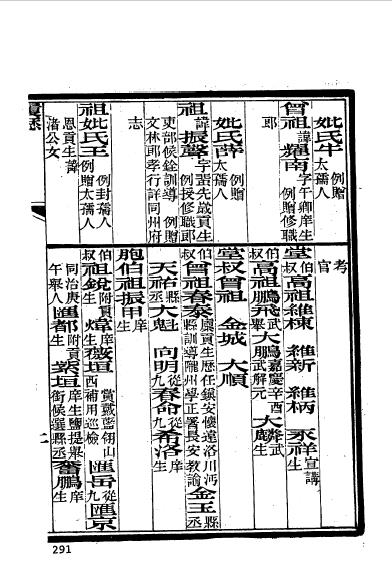 妣氏牛 例贈太孺人
曾祖耀南 諱 字午卿庠生 例贈修職郎
妣氏薛 例贈太孺人
祖振聲 諱 字張先歲貢生 例授修職郎
吏部候銓訓導 例贈
文林郎孝行詳同州府
志
祖妣氏王 例封孺人 例贈太孺人
恩貢生諱
渚公女
考
官
堂伯叔高祖維棟 維新 維柄 永祥 宣講生
伯叔高祖鵬飛 武舉 大鵬 嘉慶辛酉武解元 大麟 武生
堂叔曾祖 金城 大順
伯叔曾祖春泰 廩貢生歷任鎮安懷遠洛川沔縣訓導隴州學正署長安教諭 金玉 縣丞
天祐 縣丞 大魁 向明 從九 春命 從九 希洛 庠生
胞伯祖振甲 庠生
伯叔祖銳 附貢生 煒 庠生 薇垣 賞戴藍翎山西補用巡檢 匯岳 從九 匯京
同治庚午舉人 匯都 附貢生 紫垣 庠生鹽提舉銜候選縣丞 奮鵬 庠生
二
291